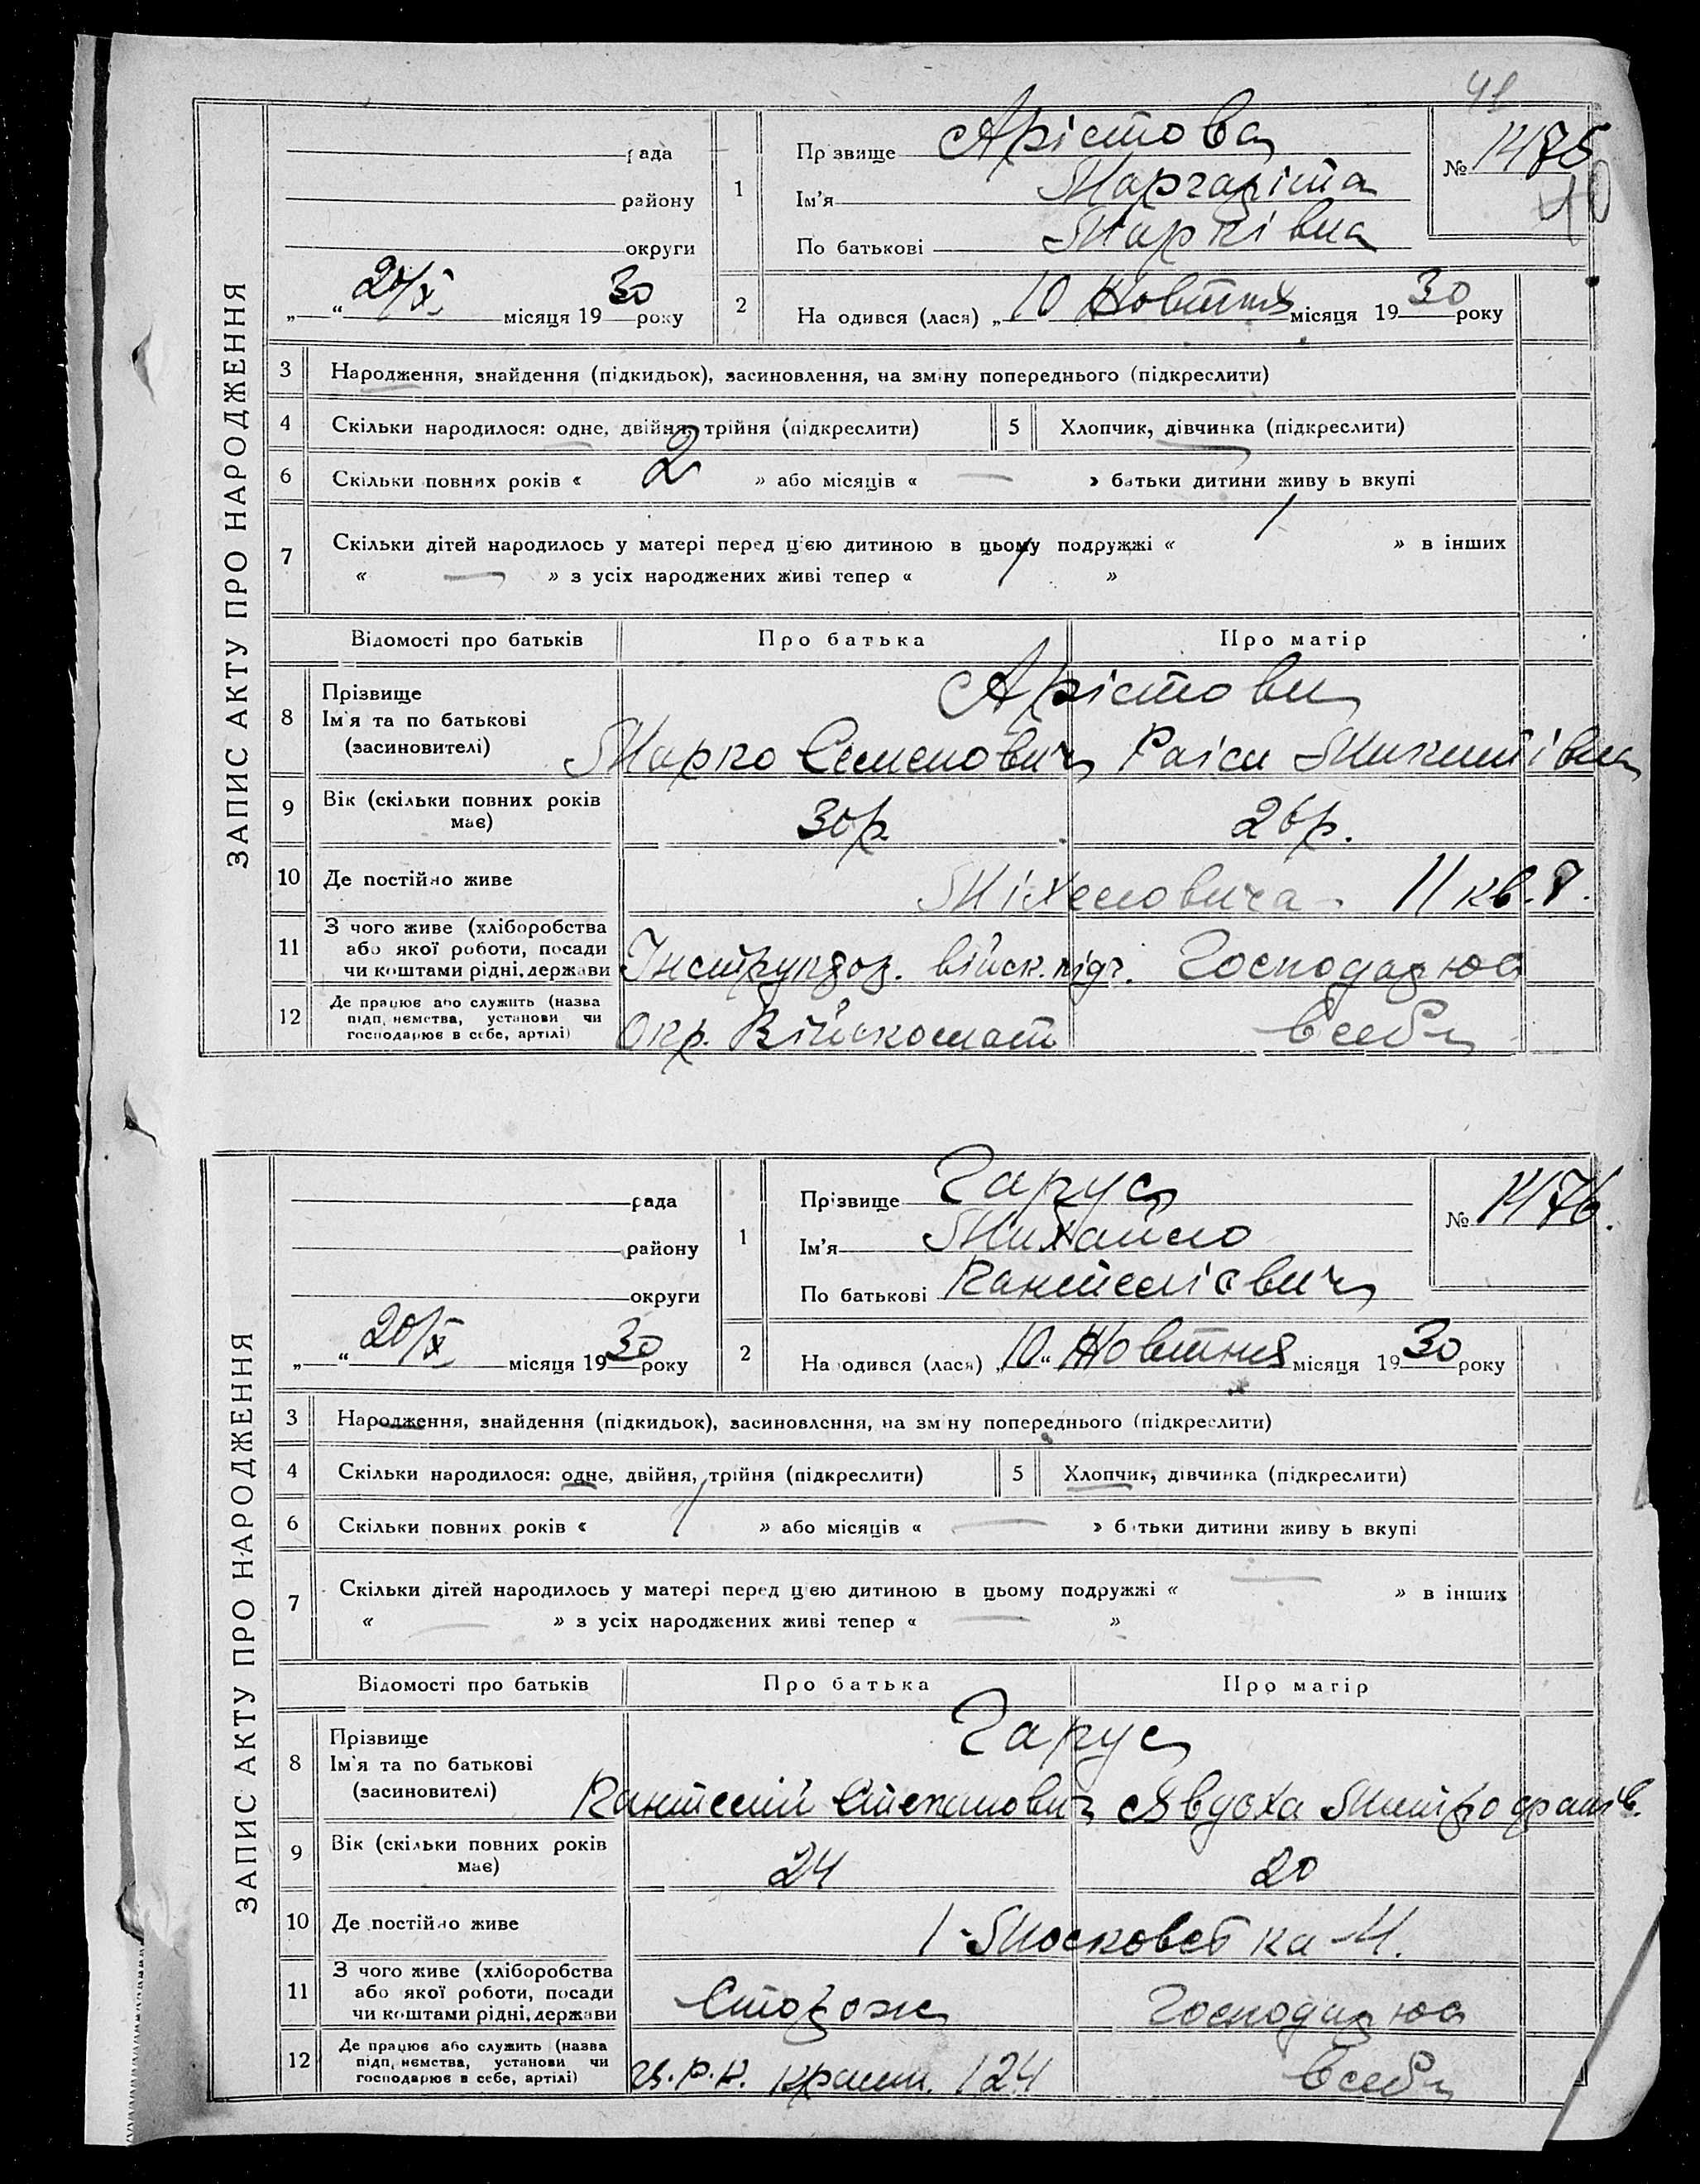 41
ЗАПИС АКТУ ПРО НАРОДЖЕННЯ
рада
району
округи
„ “ 20/X місяця 1930 року
1 Прізвище Арістова
Ім'я Маргаріта
По батькові Марківна
№ 1475
40
2 На одився (лася) „10 Жовтня місяця 1930 року
3 Народження, знайдення (підкидьок), засиновлення, на зміну попереднього (підкреслити)
4 Скільки народилося: одне, двійня, трійня (підкреслити) 5 Хлопчик, дівчинка (підкреслити)
6 Скільки повних років « 2 » або місяців « — » батьки дитини живу ь вкупі
7 Скільки дітей народилось у матері перед цією дитиною в цьому подружжі « 1 » в інших
« — » з усіх народжених живі тепер « 1 »
Відомості про батьків Про батька Про матір
8 Прізвище Арістови
Ім'я та по батькові
(засиновителі) Марко Семенович Раіса Микитівна
9 Вік (скільки повних років
має) 30р. 26р.
10 Де постійно живе 11 кв. 7.
11 З чого живе (хліборобства
або якої роботи, посади
чи коштами рідні, держави Інструктор. військ. підг. Господарює
12 Де працює або служить (назва
підп, немства, установи чи
господарює в себе, артілі) Окр. Військомат в себе
ЗАПИС АКТУ ПРО НАРОДЖЕННЯ
рада
району
округи
„ “ 20/X місяця 1930 року
1 Прізвище Гарус
Ім'я Михайло
По батькові Пантелієвич
№ 1476.
2 На одився (лася) „10“ Жовтня місяця 1930 року
3 Народження, знайдення (підкидьок), засиновлення, на зміну попереднього (підкреслити)
4 Скільки народилося: одне, двійня, трійня (підкреслити) 5 Хлопчик, дівчинка (підкреслити)
6 Скільки повних років « 1 » або місяців « — » батьки дитини живу ь вкупі
7 Скільки дітей народилось у матері перед цією дитиною в цьому подружжі « — » в інших
« — » з усіх народжених живі тепер « — »
Відомості про батьків Про батька Про матір
8 Прізвище Гарус
Ім'я та по батькові
(засиновителі) Пантелій Степанович Явдоха Митрофанів.
9 Вік (скільки повних років
має) 24 20
10 Де постійно живе 1-Московська
11 З чого живе (хліборобства
або якої роботи, посади
чи коштами рідні, держави Сторож Господарює
12 Де працює або служить (назва
підп, немства, установи чи
господарює в себе, артілі) ц.р.к. крамн. 124 в себе